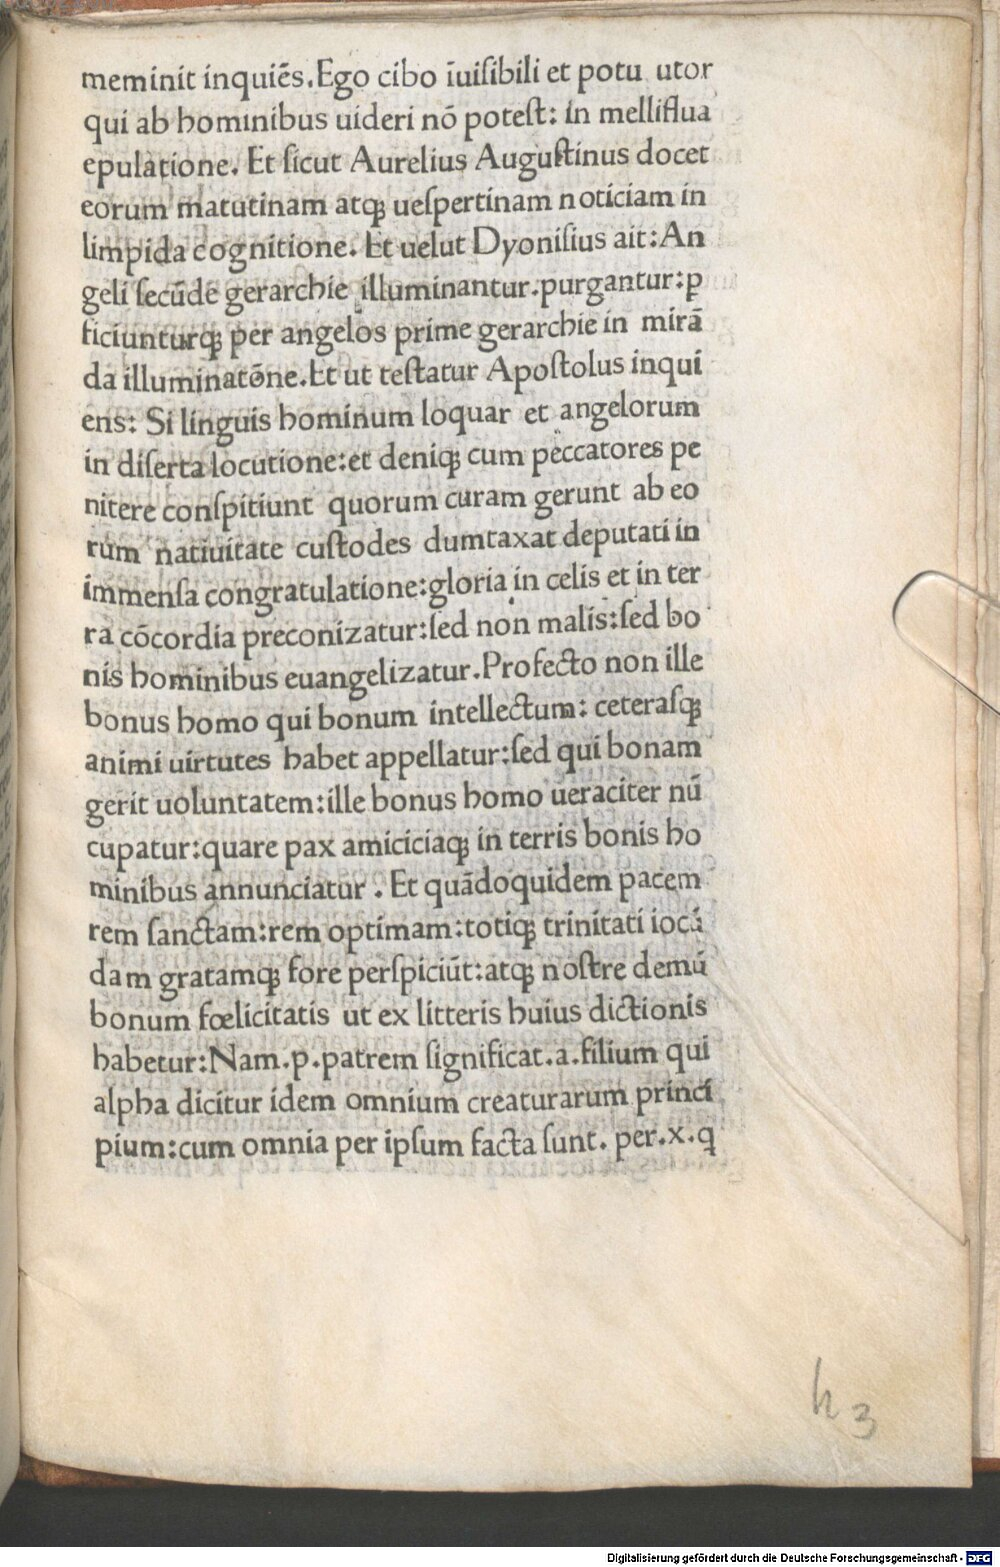 meminit inquiēs. Ego cibo īuiſibili et potu utor
qui ab hominibus uideri nō poteſt: in melliflua
epulatione. Et ſicut Aurelius Auguſtinus docet
eorum matutinam atqꝫ ueſpertinam noticiam in
limpida cognitione. Et uelut Dyoniſius ait: An
geli ſecūde gerarchie illuminantur. purgantur: ꝑ
ficiunturqꝫ per angelos prime gerarchie in mirā
da illuminatōne. Et ut teſtatur Apoſtolus inqui
ens: Si linguis hominum loquar et angelorum
in diſerta locutione: et deniqꝫ cum peccatores pe
nitere conſpitiunt quorum curam gerunt ab eo
rum natiuitate cuſtodes dumtaxat deputati in
immenſa congratulatione: gloria in celis et in ter
ra cōcordia preconizatur: ſed non malis: ſed bo
nis hominibus euangelizatur. Profecto non ille
bonus homo qui bonum intellectum: ceteraſqꝫ
animi uirtutes habet appellatur: ſed qui bonam
gerit uoluntatem: ille bonus homo ueraciter nū
cupatur: quare pax amiciciaqꝫ in terris bonis ho
minibus annunciatur. Et quādoquidem pacem
rem ſanctam: rem optimam: totiqꝫ trinitati iocū
dam gratamqꝫ fore perſpiciūt: atqꝫ noſtre demū
bonum fœlicitatis ut ex litteris huius dictionis
habetur: Nam .p. patrem ſignificat .a. filium qui
alpha dicitur idem omnium creaturarum princi
pium: cum omnia per ipſum facta ſunt. per .x. q
h 3
Digitalisierung gefördert durch die Deutsche Forschungsgemeinschaft - DFG